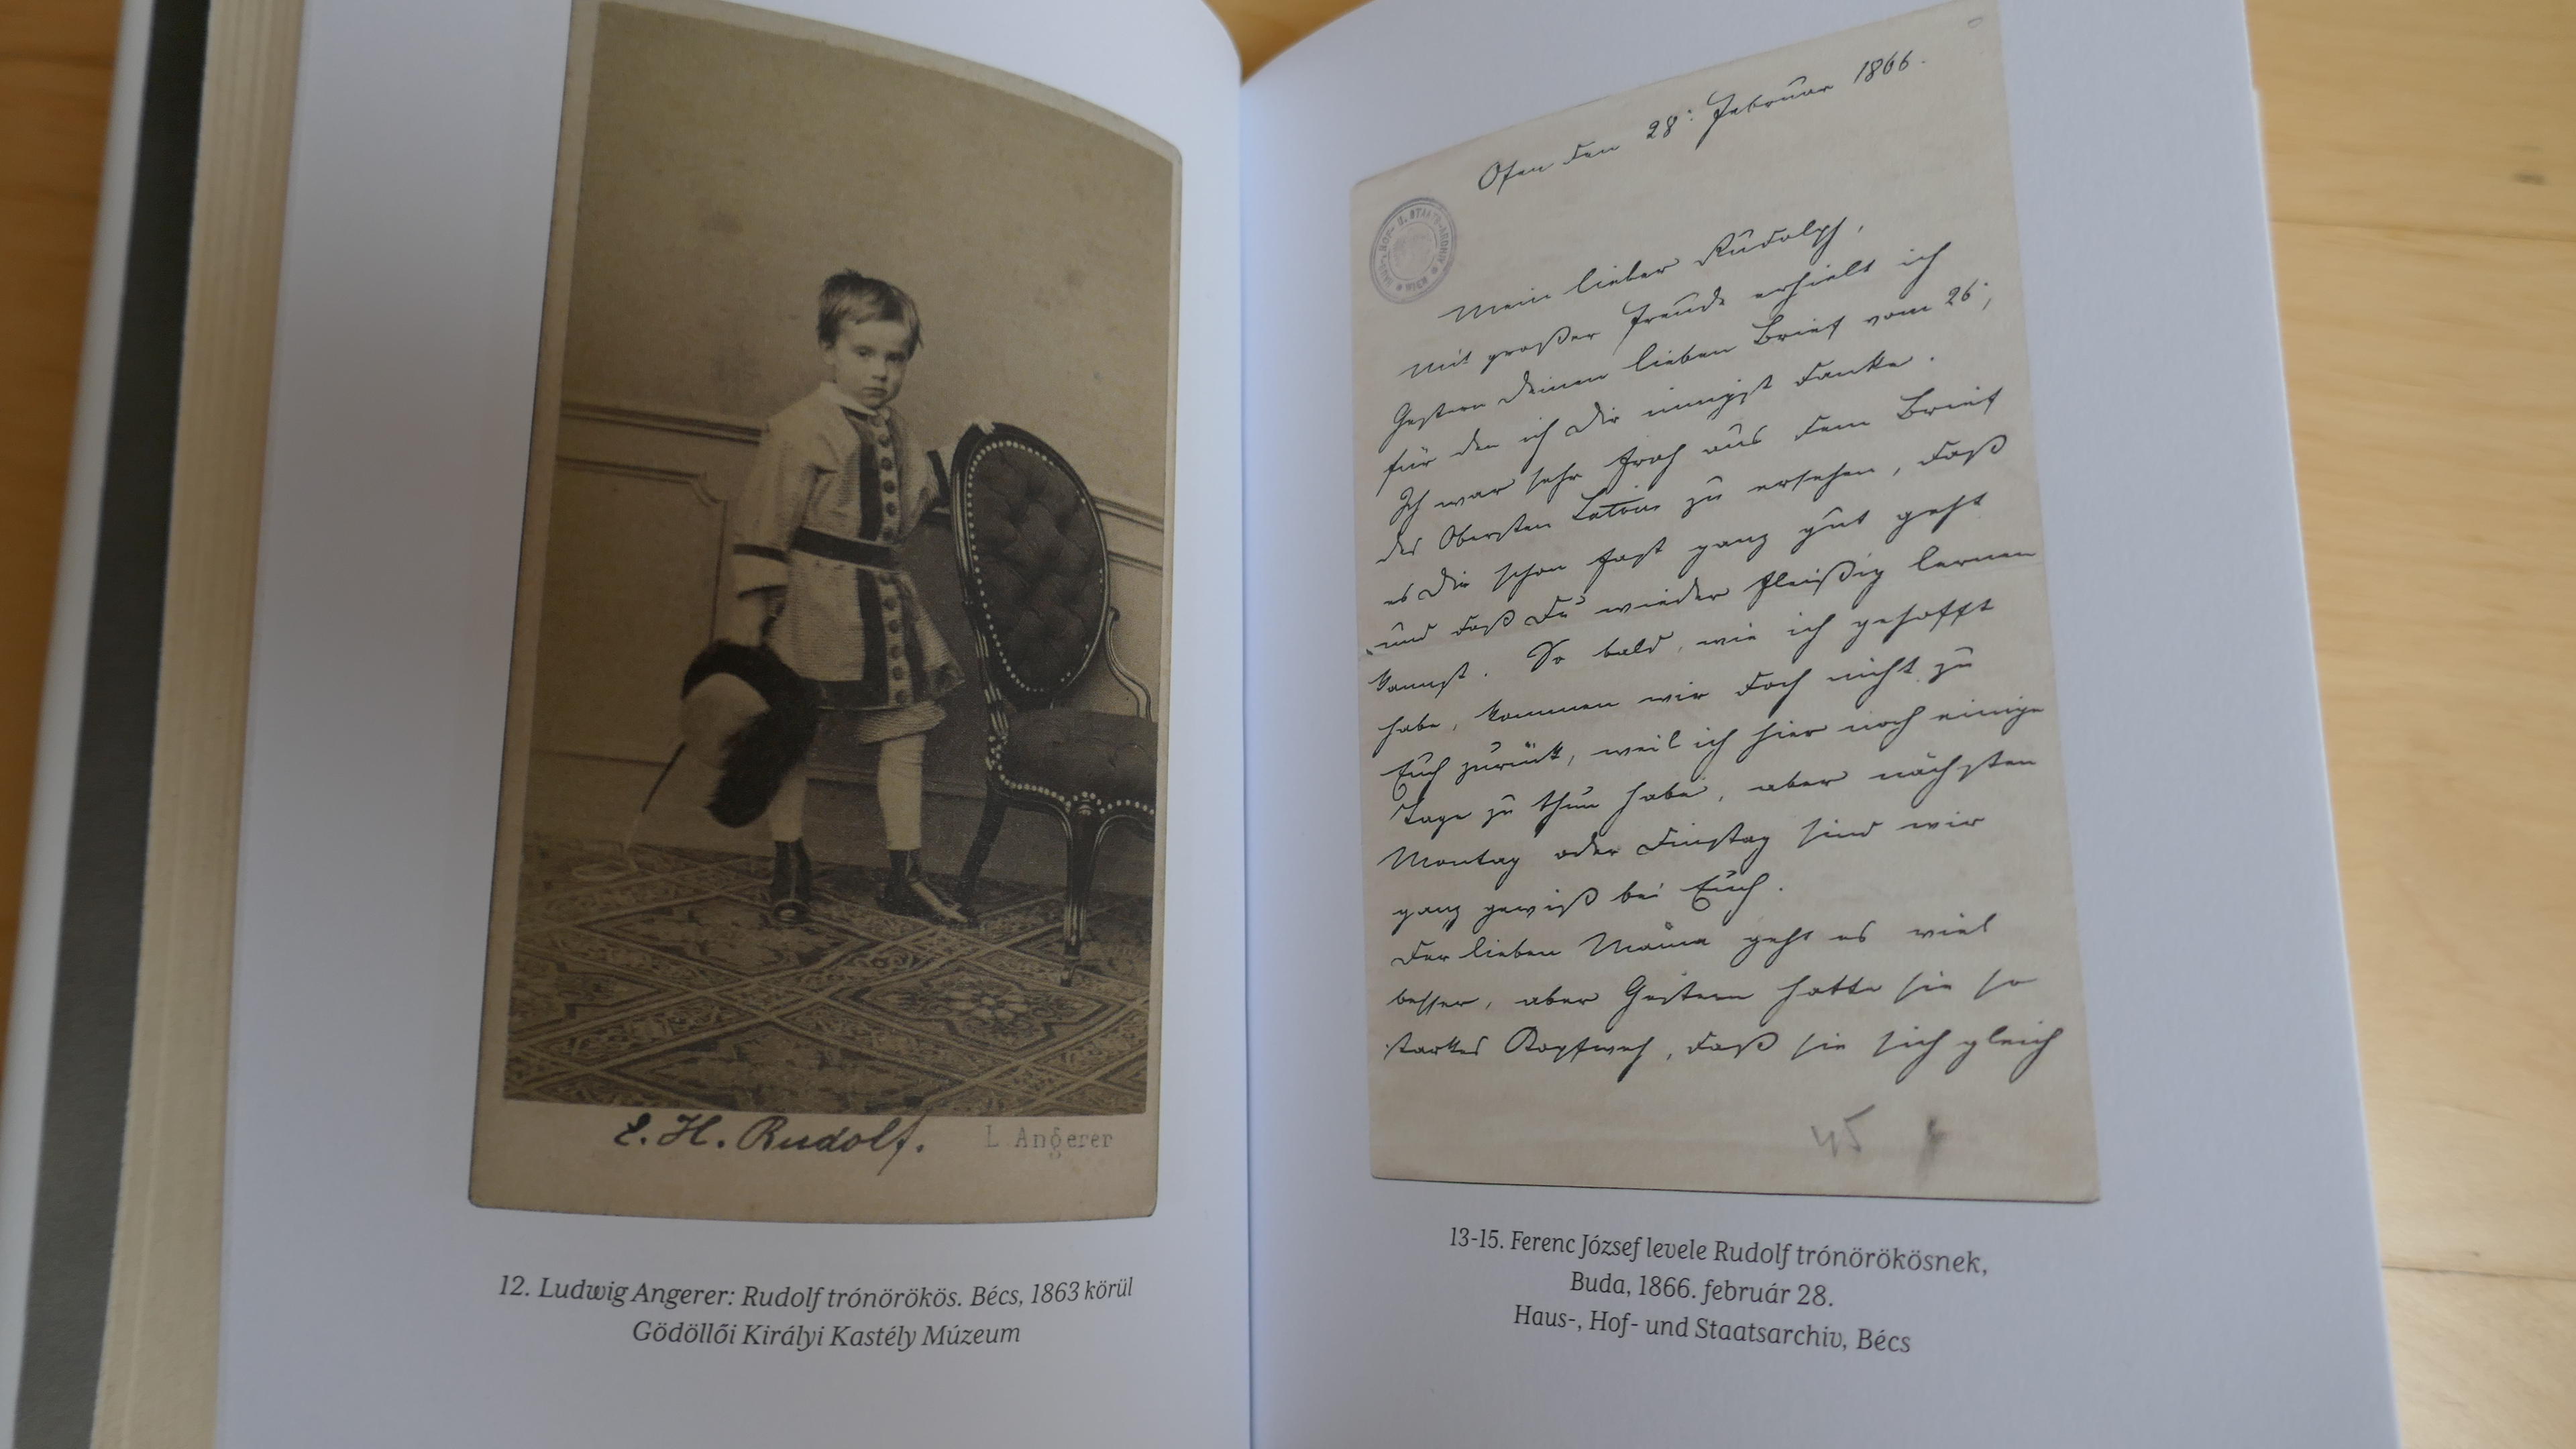 E. H. Rudolf.
L. Angerer
12. Ludwig Angerer: Rudolf trónörökös. Bécs, 1863 körül
Gödöllői Királyi Kastély Múzeum
Ofen den 28: Februar 1866.
HAUS-, HOF- U. STAATS-ARCHIV WIEN
Mein lieber Rudolph,
Mit großer Freude erhielt ich
Gestern Deinen lieben Brief vom 26;
für den ich Dir innigst danke.
Ich war sehr froh aus dem Brief
des Obersten Latour zu ersehen, daß
es Dir schon fast ganz gut geht
und daß Du wieder fleißig lernen
kannst. So bald, wie ich gehofft
habe, kommen wir doch nicht zu
Euch zurück, weil ich hier noch einige
Tage zu thun habe, aber nächsten
Montag oder Dinstag sind wir
ganz gewiß bei Euch.
Der lieben Mama geht es viel
besser, aber Gestern hatte sie so
starkes Kopfweh, daß sie sich gleich
45
13-15. Ferenc József levele Rudolf trónörökösnek,
Buda, 1866. február 28.
Haus-, Hof- und Staatsarchiv, Bécs